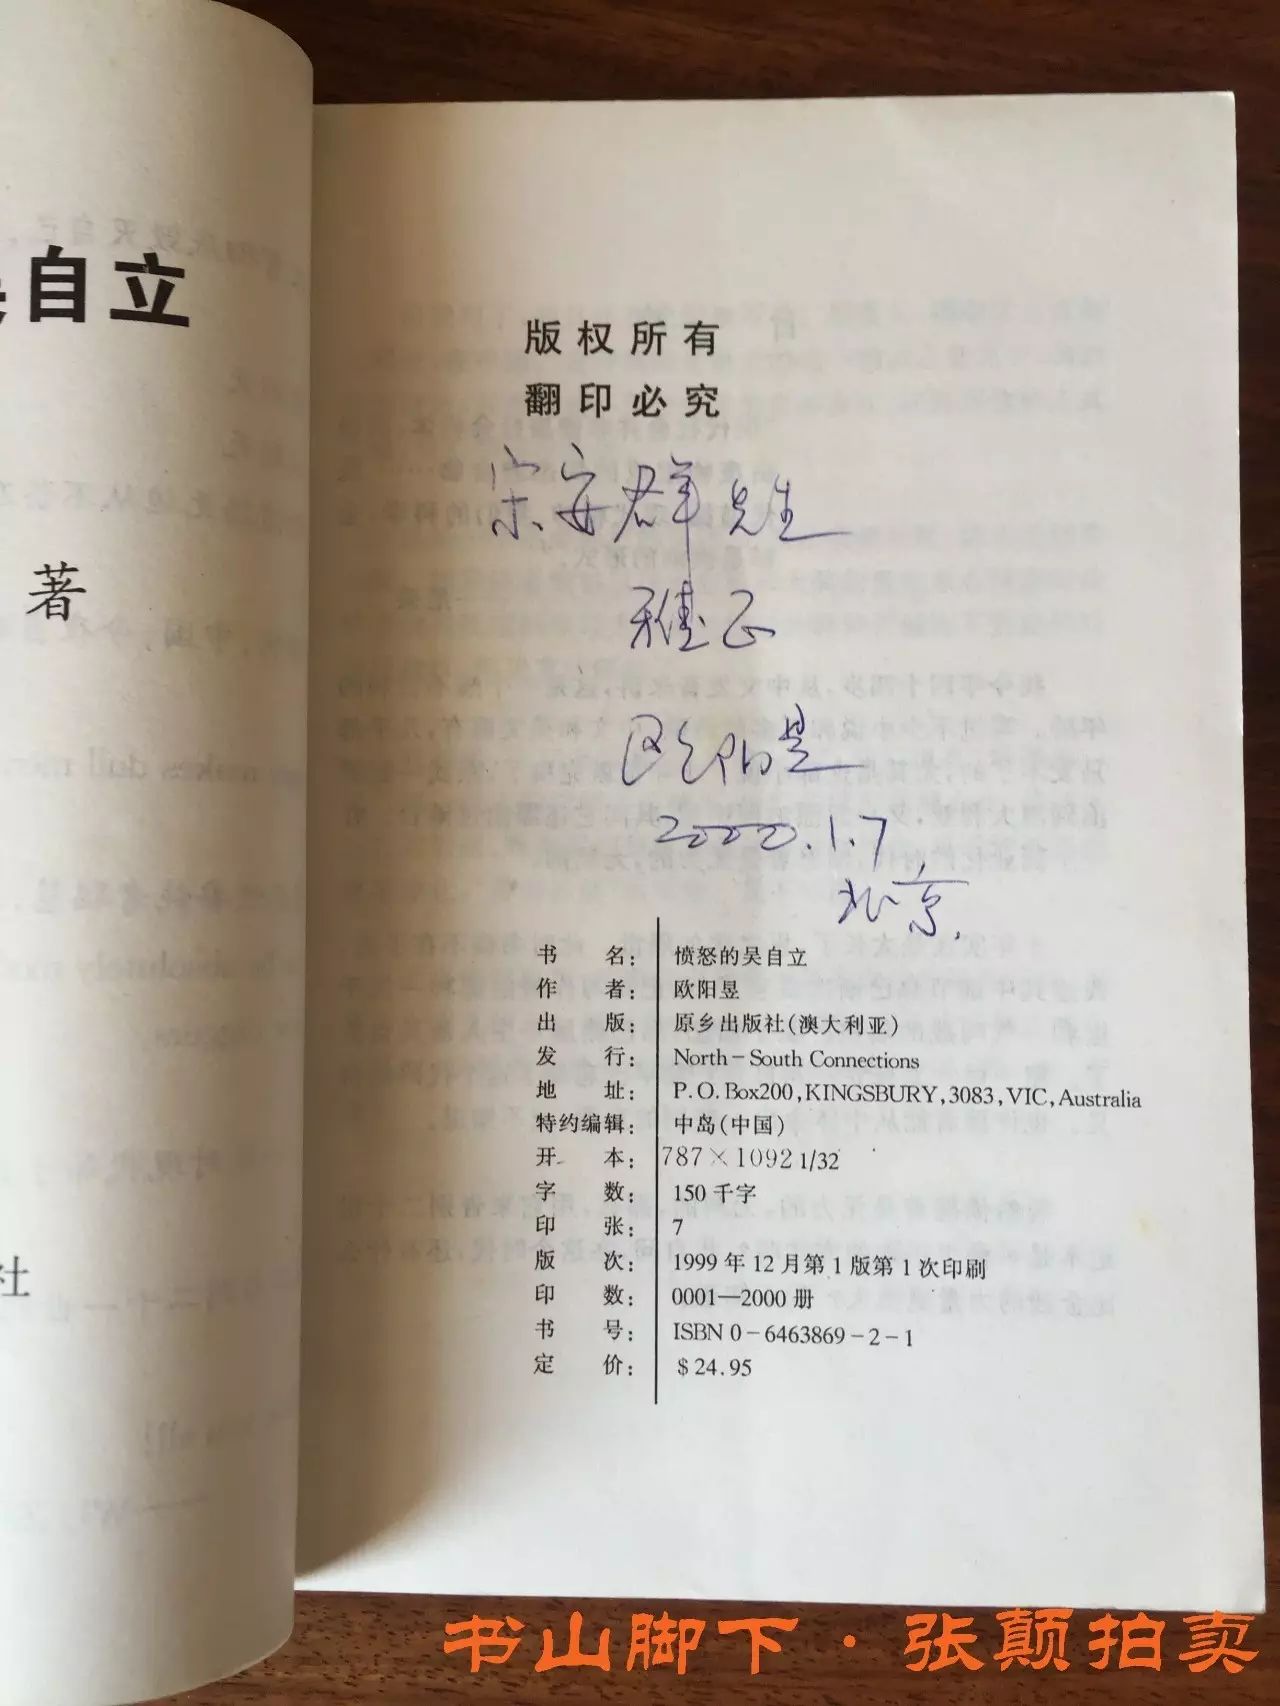 自立
著
社
版权所有
翻印必究
宋安群先生
雅正
欧阳昱
2000.1.7
北京.
书 名： 愤怒的吴自立
作 者： 欧阳昱
出 版： 原乡出版社(澳大利亚)
发 行： North-South Connections
地 址： P.O.Box200,KINGSBURY,3083,VIC,Australia
特约编辑： 中岛(中国)
开 本： 787×1092 1/32
字 数： 150千字
印 张： 7
版 次： 1999年12月第1版第1次印刷
印 数： 0001—2000册
书 号： ISBN 0-6463869-2-1
定 价： $24.95
书山脚下·张颠拍卖